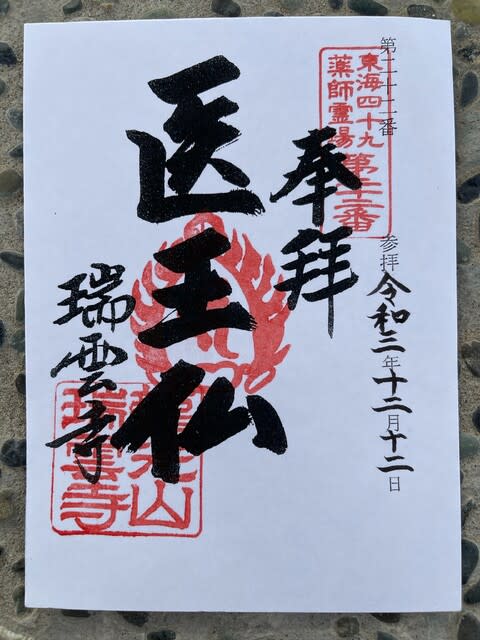 第二十二番 参拝 令和二年十二月十二日
東海四十九
薬師霊場
第二十二番
奉拝
医王仏
瑞雲寺
瑞雲寺